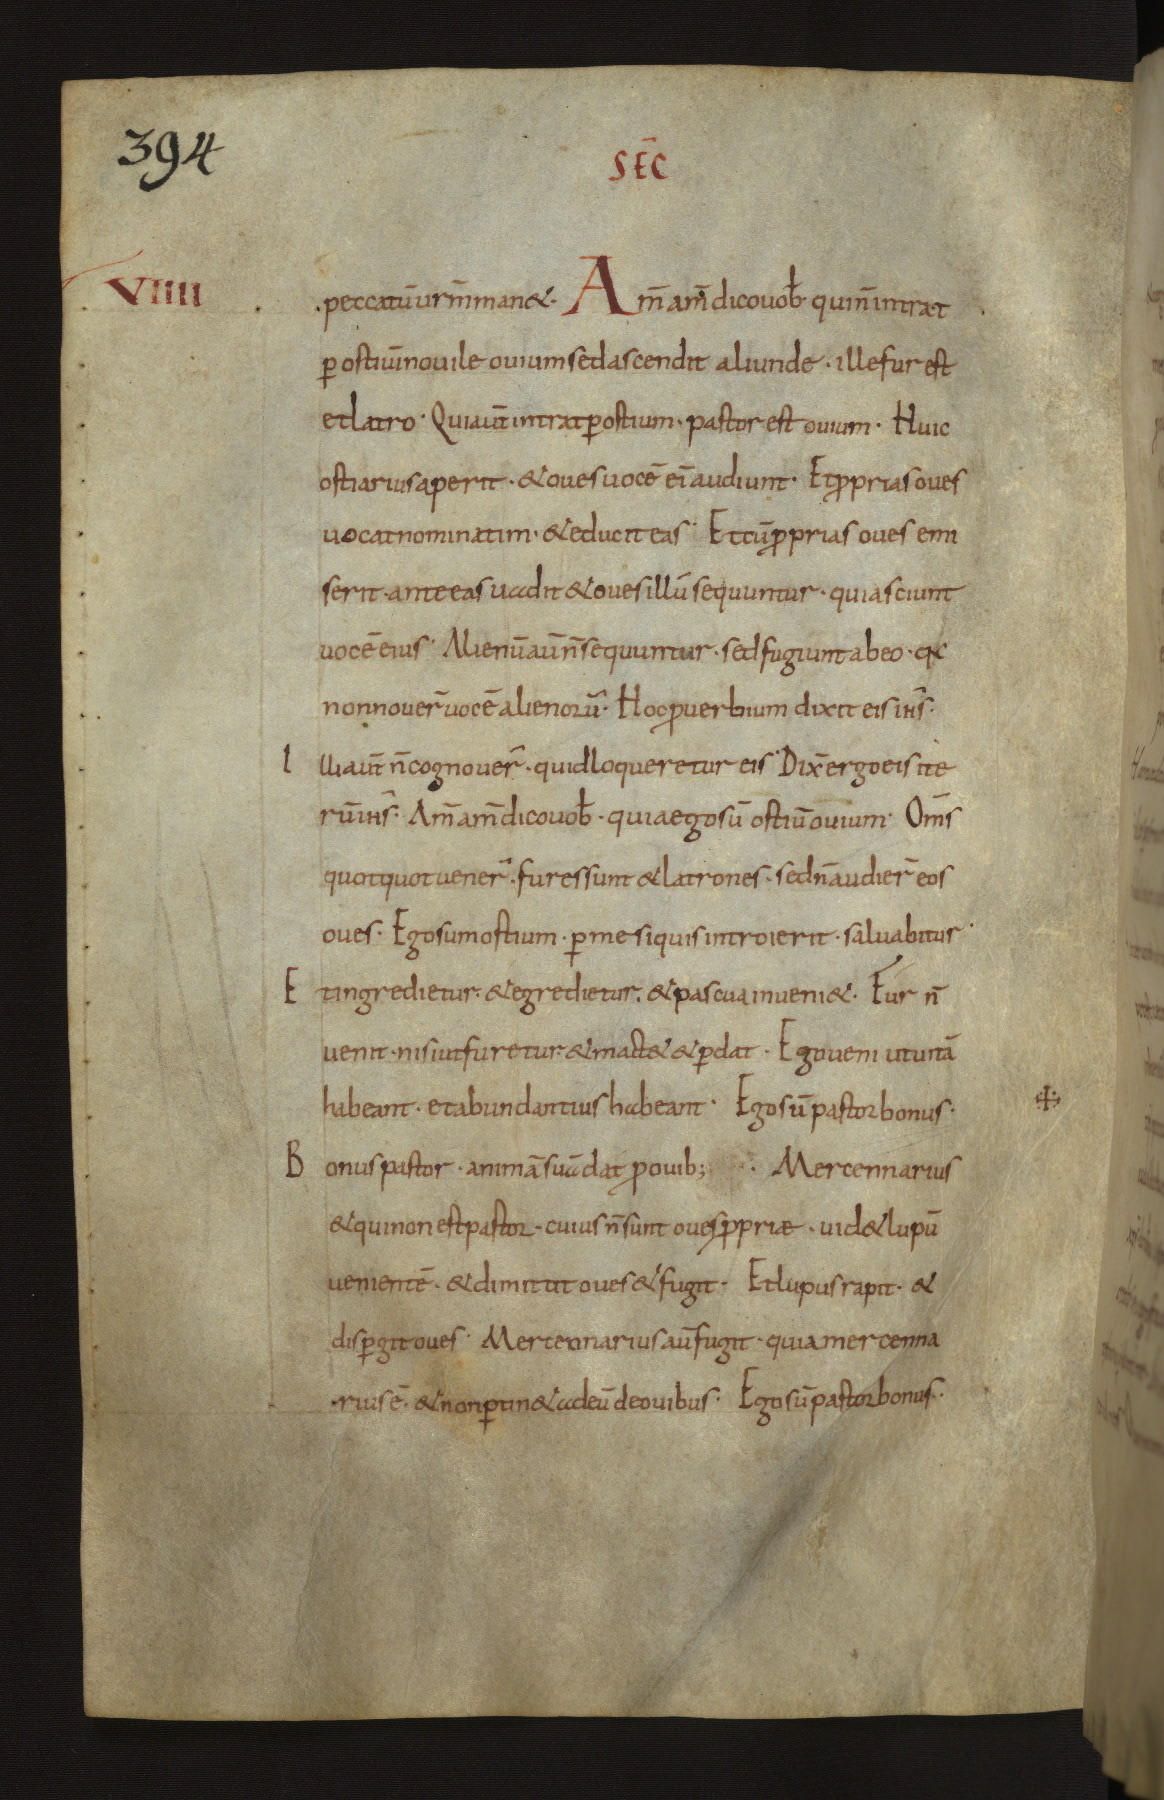 394
SEC̄
VIIII
peccatū urm̄ man&. Am̄ am̄ dico uob̄. qui n̄ intrat
ꝑ ostiū in ouile ouium sed ascendit aliunde. ille fur est
et latro. Qui aūt intrat ꝑ ostium. pastor est ouium. Huic
ostiarius aperit. & oues uocē ei audiunt. Et ꝓprias oues
uocat nominatim. & educit eas. Et cū ꝓprias oues emi
serit. ante eas uadit & oues illū sequuntur. quia sciunt
uocē eius. Alienū aū n̄ sequuntur. sed fugiunt ab eo. q
non nouer̄ uocē alienorū. Hoc ꝓuerbium dixit eis ih̄s.
Illi aūt n̄ cognouer̄. quid loqueretur eis. Dix̄ ergo eis ite
rū ih̄s. Am̄ am̄ dico uob̄. quia ego sū ostiū ouium. Om̄s
quotquot uener̄. fures sunt & latrones. sed n̄ audier̄ eos
oues. Ego sum ostium. ꝑ me si quis introierit. saluabitur
Et ingredietur. & egredietur. & pascua inueni&. Fur n̄
uenit. nisi ut furetur. & mact& & ꝑdat. Ego ueni ut uitā
habeant. et abundantius habeant. Ego sū pastor bonus.
Bonus pastor. animā suā dat ꝓ ouib; . Mercennarius
& qui non est pastor. cuius n̄ sunt oues ꝓpriæ. uid& lupū
uenientē. & dimittit oues & fugit. Et lupus rapit. &
disꝑgit oues. Mercennarius aū fugit. quia mercenna
rius ē. & non ꝑtin& ad eū de ouibus. Ego sū pastor bonus.